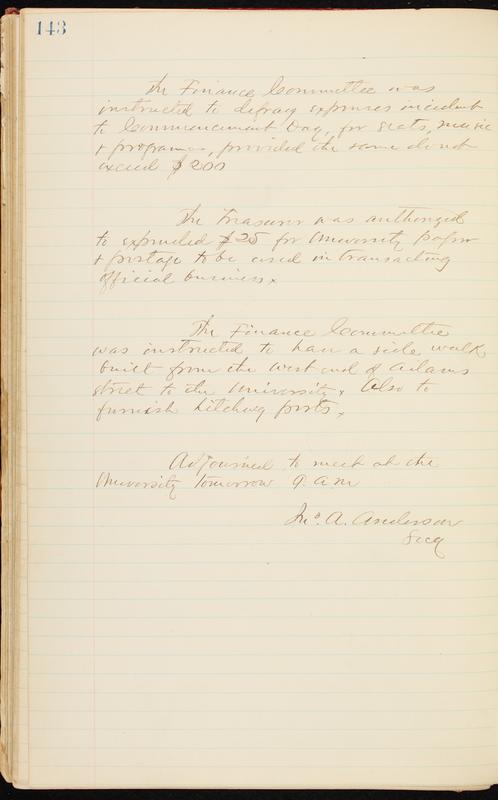 143
The Finance Committee was
instructed to defray expenses incident
to Commencement Day, for seats, music
& programs, provided the same do not
exceed $200
The Treasurer was authorized
to expended $25 for University paper
& postage to be used in transacting
official business.
The Finance Committee
was instructed to have a side walk
built from the west end of Adams
street to the University. Also to
furnish hitching posts.
Adjourned to meet at the
University tomorrow 9 a m
Jno. A. Anderson
Secy